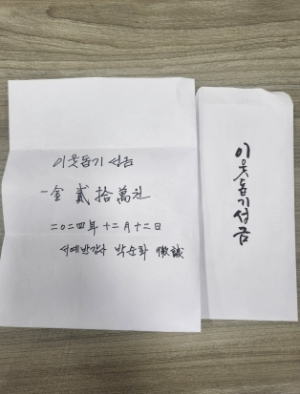 이웃돕기 성금
一金 貳拾萬원
二○二四年 十二月十二日
서예반강사 박순화 微誠
이웃돕기성금